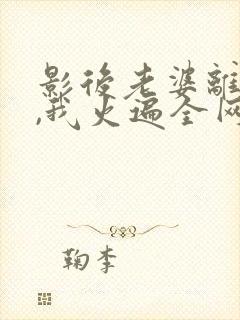 影後老婆離
,我火遍全网
鞠李